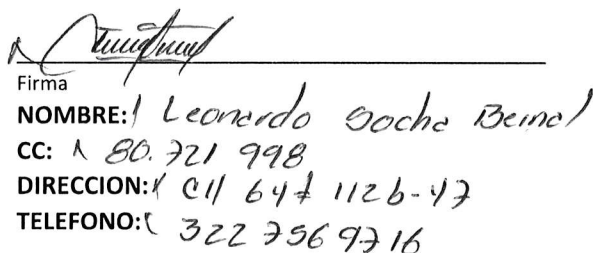 Firma
NOMBRE: Leonardo Socha Bernal
CC: 80.721 998
DIRECCION: Cll 64f 112b-47
TELEFONO: 322 7569716